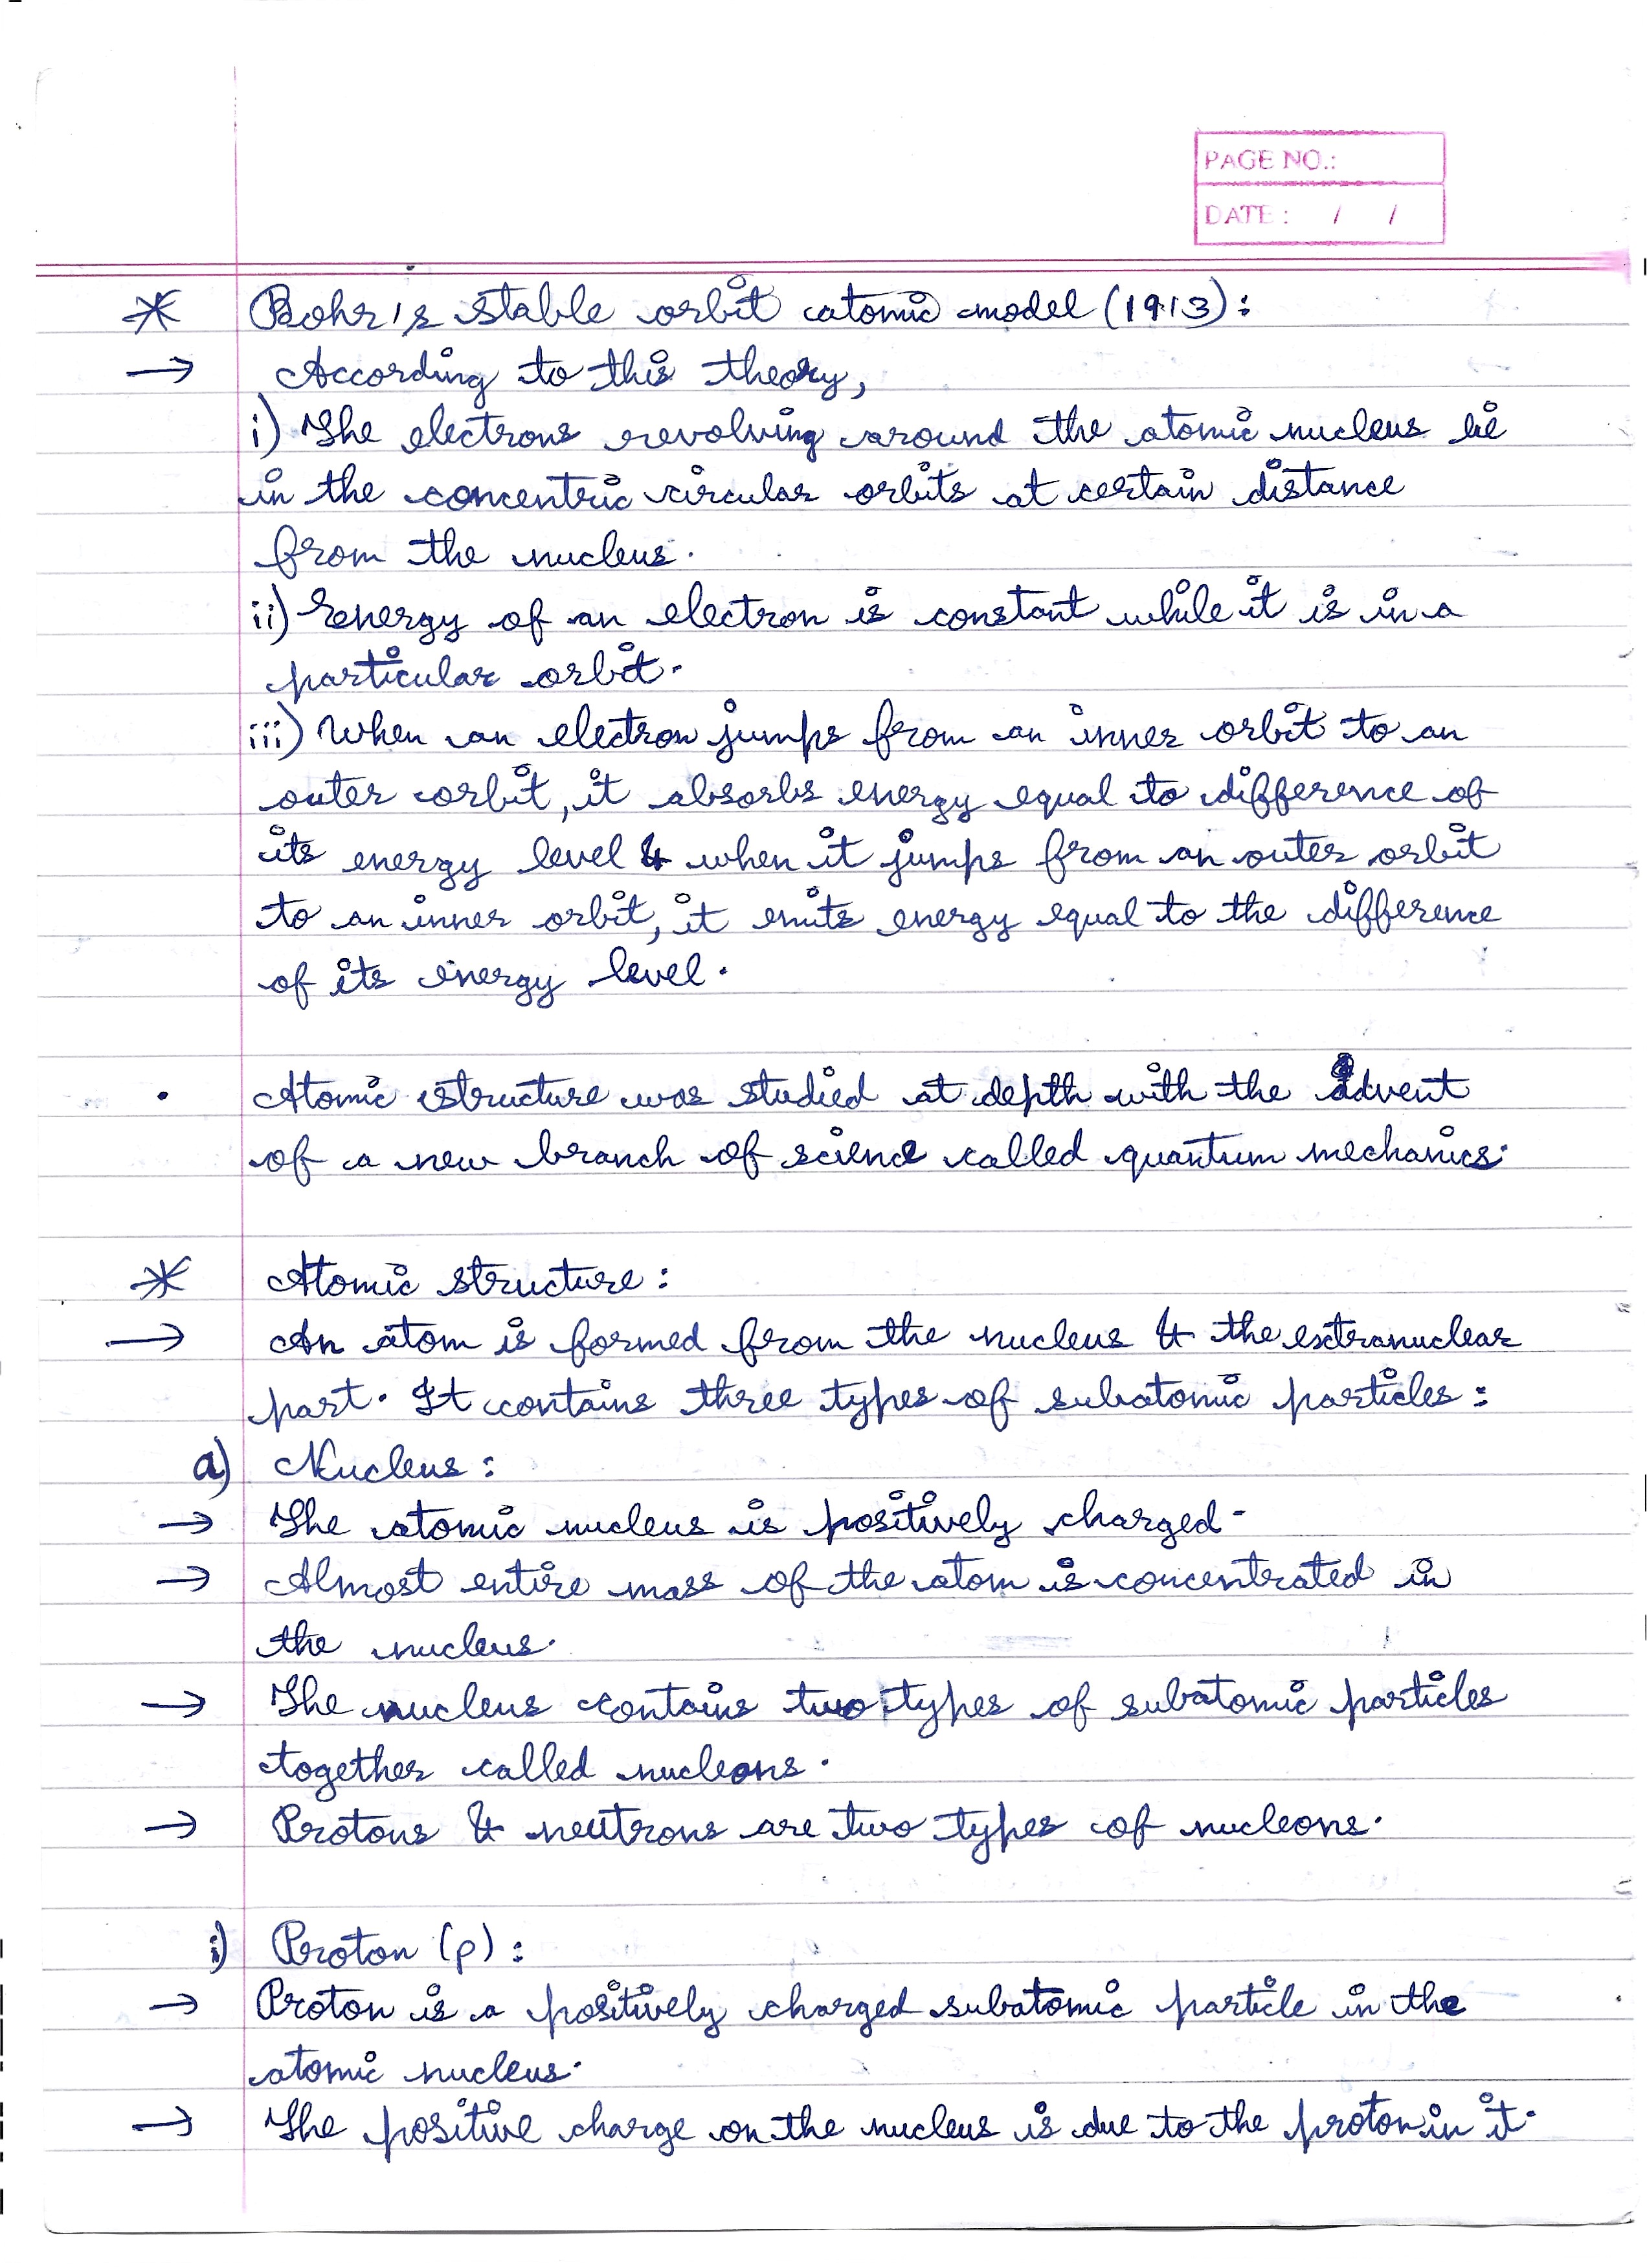 PAGE NO.:
DATE : / /
* Bohr's stable orbit atomic model (1913):
→ According to this theory,
i) The electrons revolving around the atomic nucleus lie
in the concentric circular orbits at certain distance
from the nucleus.
ii) Energy of an electron is constant while it is in a
particular orbit.
iii) When an electron jumps from an inner orbit to an
outer orbit, it absorbs energy equal to difference of
its energy level & when it jumps from an outer orbit
to an inner orbit, it emits energy equal to the difference
of its energy level.
• Atomic structure was studied at depth with the advent
of a new branch of science called quantum mechanics.
* Atomic structure :
→ An atom is formed from the nucleus & the extranuclear
part. It contains three types of subatomic particles :
a) Nucleus :
→ The atomic nucleus is positively charged.
→ Almost entire mass of the atom is concentrated in
the nucleus.
→ The nucleus contains two types of subatomic particles
together called nucleons.
→ Protons & neutrons are two types of nucleons.
i) Proton (p) :
→ Proton is a positively charged subatomic particle in the
atomic nucleus.
→ The positive charge on the nucleus is due to the proton in it.